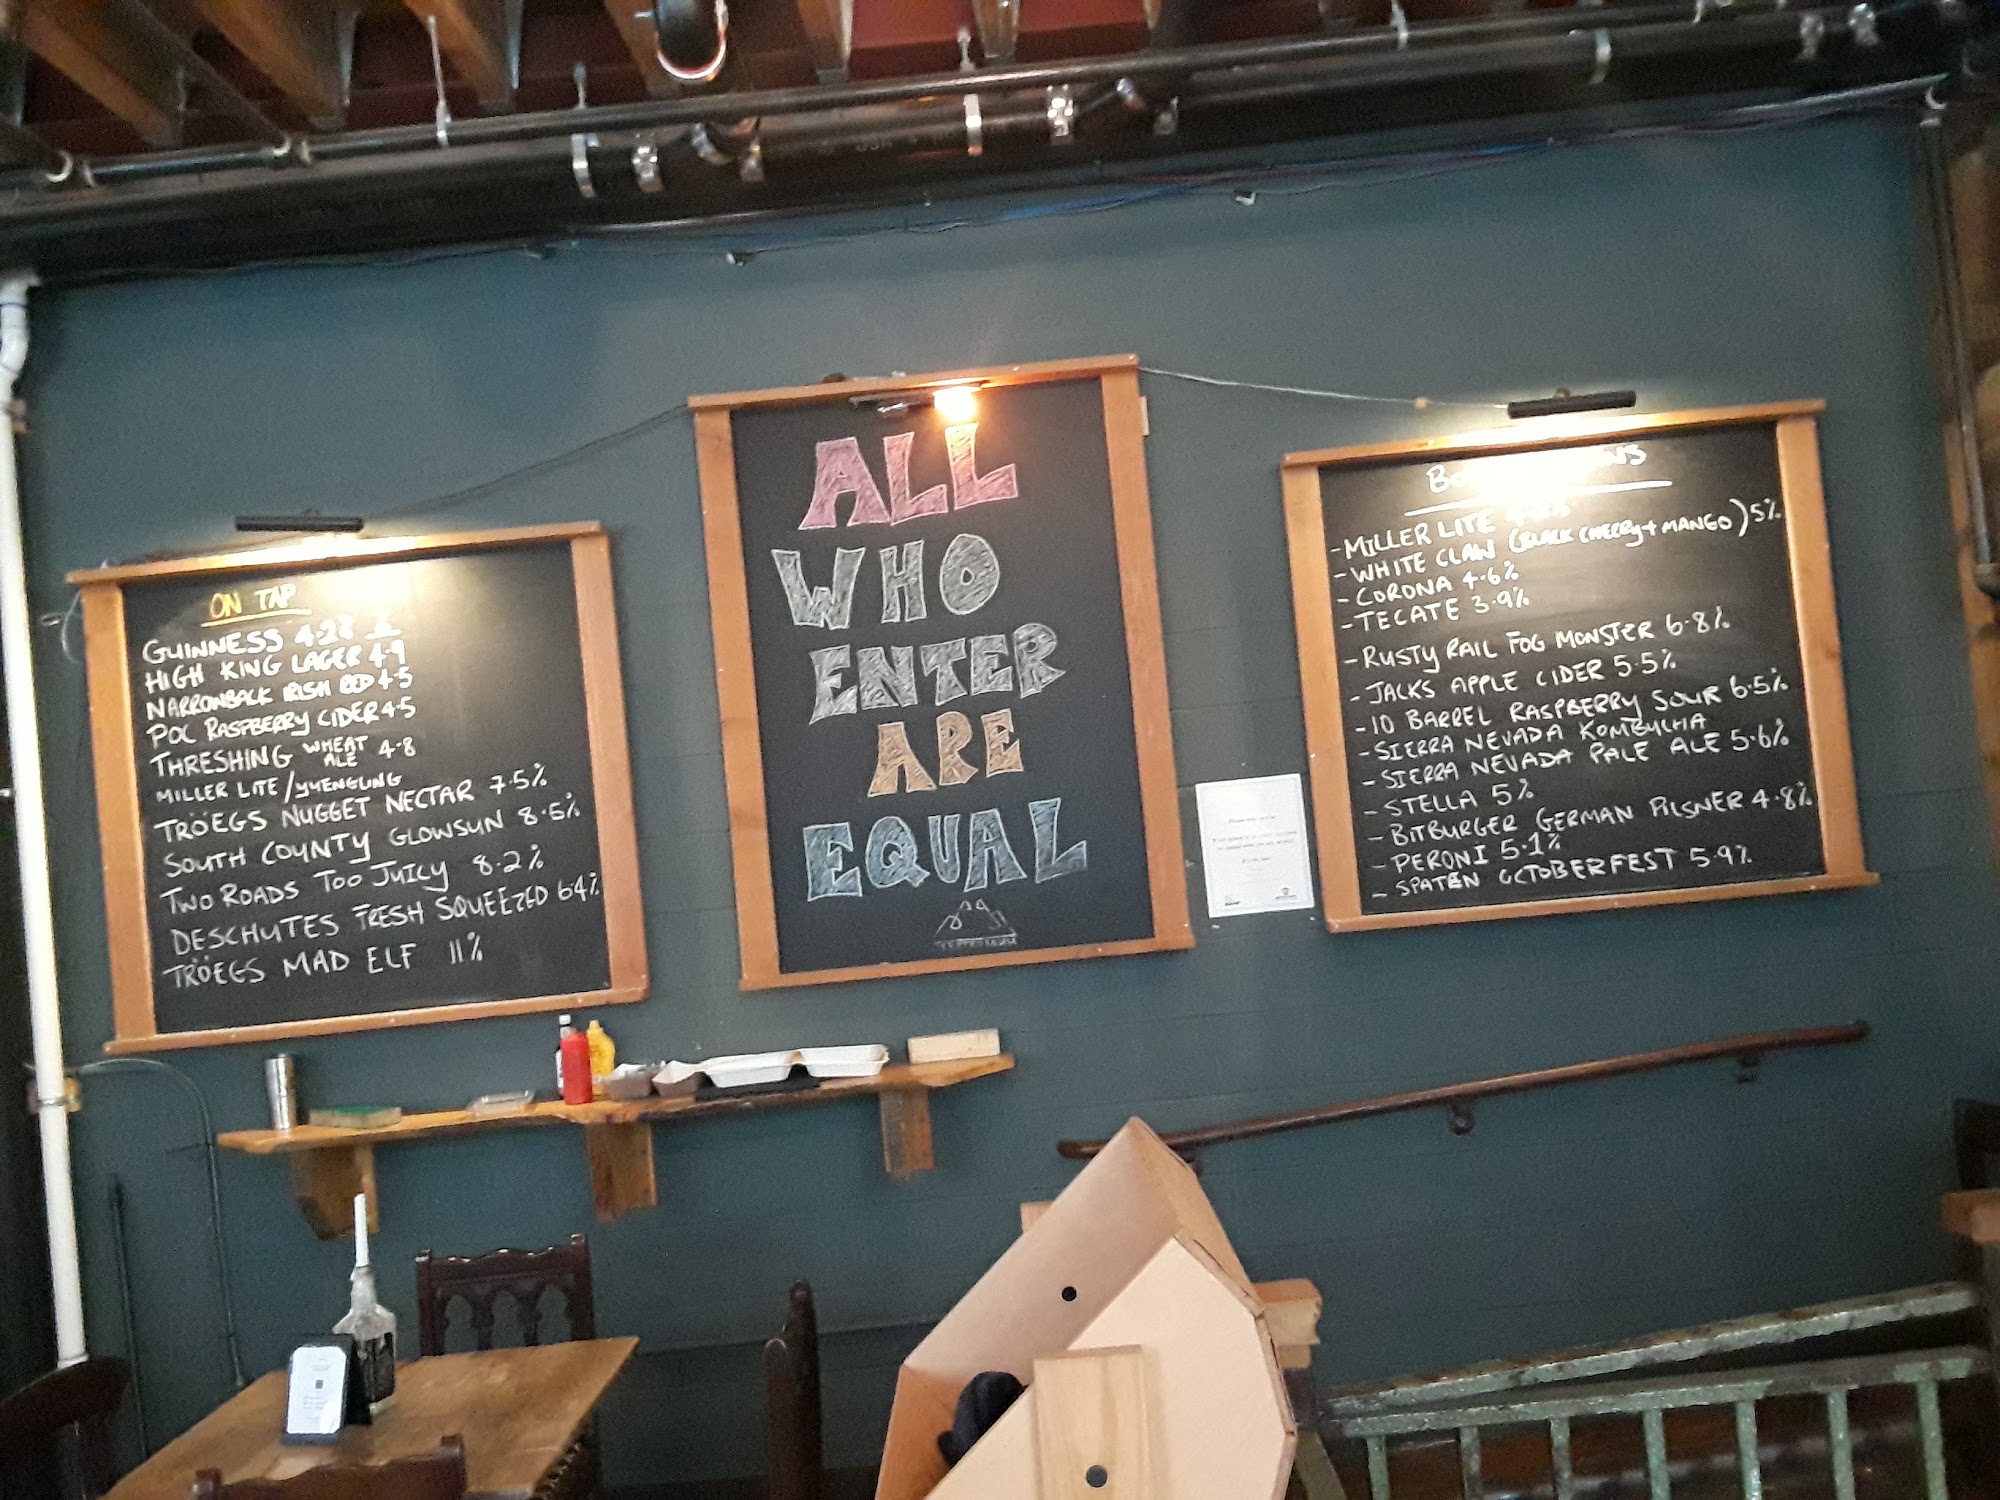 ON TAP
GUINNESS 4.28
HIGH KING LAGER 4.9
NARROWBACK IRISH RED 4.5
POC RASPBERRY CIDER 4.5
THRESHING WHEAT ALE 4.8
MILLER LITE / YUENGLING
TRÖEGS NUGGET NECTAR 7.5%
SOUTH COUNTY GLOWSUN 8.5%
TWO ROADS TOO JUICY 8.2%
DESCHUTES FRESH SQUEEZED 6.4%
TRÖEGS MAD ELF 11%
ALL
WHO
ENTER
ARE
EQUAL
- MILLER LITE
- WHITE CLAW (BLACK CHERRY + MANGO) 5%
- CORONA 4.6%
- TECATE 3.9%
- RUSTY RAIL FOG MONSTER 6.8%
- JACKS APPLE CIDER 5.5%
- 10 BARREL RASPBERRY SOUR 6.5%
- SIERRA NEVADA KOMBUCHA
- SIERRA NEVADA PALE ALE 5.6%
- STELLA 5%
- BITBURGER GERMAN PILSNER 4.8%
- PERONI 5.1%
- SPATEN OCTOBERFEST 5.9%